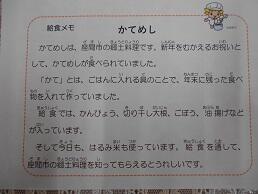 給食メモ　かてめし
かてめしは、座間市の郷土料理です。新年をむかえるお祝いと
して、かてめしが食べられていました。
「かて」とは、ごはんに入れる具のことで、年末に残った食べ
物を入れて作っていました。
給食では、かんぴょう、切り干し大根、ごぼう、油揚げなど
が入っています。
そして今日も、はるみ米も使っています。給食を通して、
座間市の郷土料理を知ってもらえるとうれしいです。